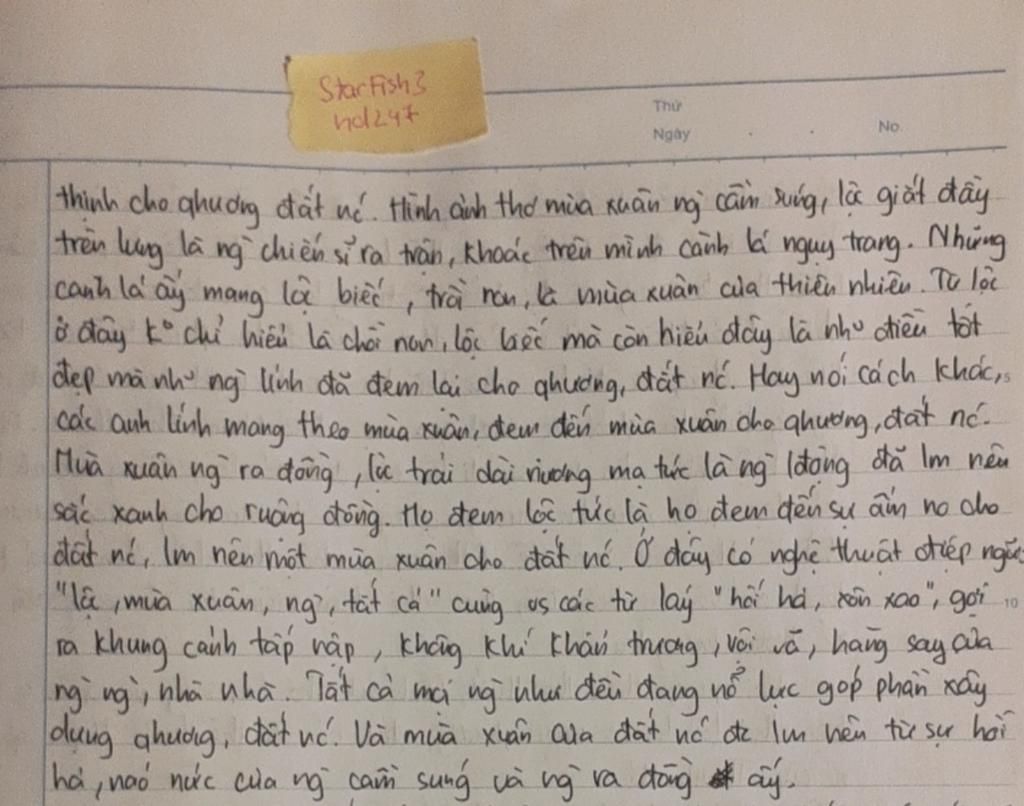 StarFish3
nd247
Thứ
Ngày . . No.
thịnh cho qhương đất nc. Hình ảnh thơ mùa xuân ng cầm súng, lộc giắt đầy
trên lưng là ng chiến sĩ ra trận, khoác trên mình cành lá nguỵ trang. Những
cành lá ấy mang lộc biếc, trồi non, là mùa xuân của thiên nhiên. Từ lộc
ở đây k° chỉ hiểu là chồi non, lộc biếc mà còn hiểu đây là nh° điều tốt
đẹp mà nh° ng lính đã đem lại cho qhương, đất nc. Hay nói cách khác,
các anh lính mang theo mùa xuân, đem đến mùa xuân cho qhương, đất nc.
Mùa xuân ng ra đồng, lộc trải dài nương mạ tức là ng lđộng đã lm nên
sắc xanh cho ruộng đồng. Họ đem lộc tức là họ đem đến sự ấm no cho
đất nc, lm nên một mùa xuân cho đất nc. Ở đây có nghệ thuật điệp ngữ:
"lộc, mùa xuân, ng, tất cả" cùng vs các từ láy "hối hả, xôn xao", gợi 10
ra khung cảnh tấp nập, không khí khẩn trương, vội vã, hăng say của
ng ng, nhà nhà. Tất cả mọi ng như đều đang nỗ lực góp phần xây
dựng qhương, đất nc. Và mùa xuân của đất nc đc lm nên từ sự hối
hả, náo nức của ng cầm súng và ng ra đồng ấy.